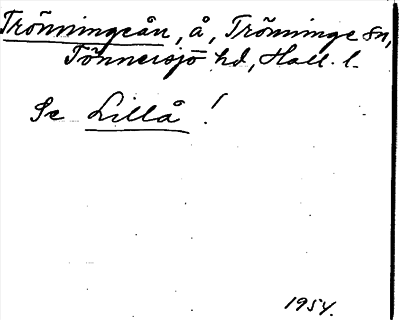 Trönningeån, å, Trönninge sn,
Tönnersjö hd, Hall. l.
Se Lillå!
1954.